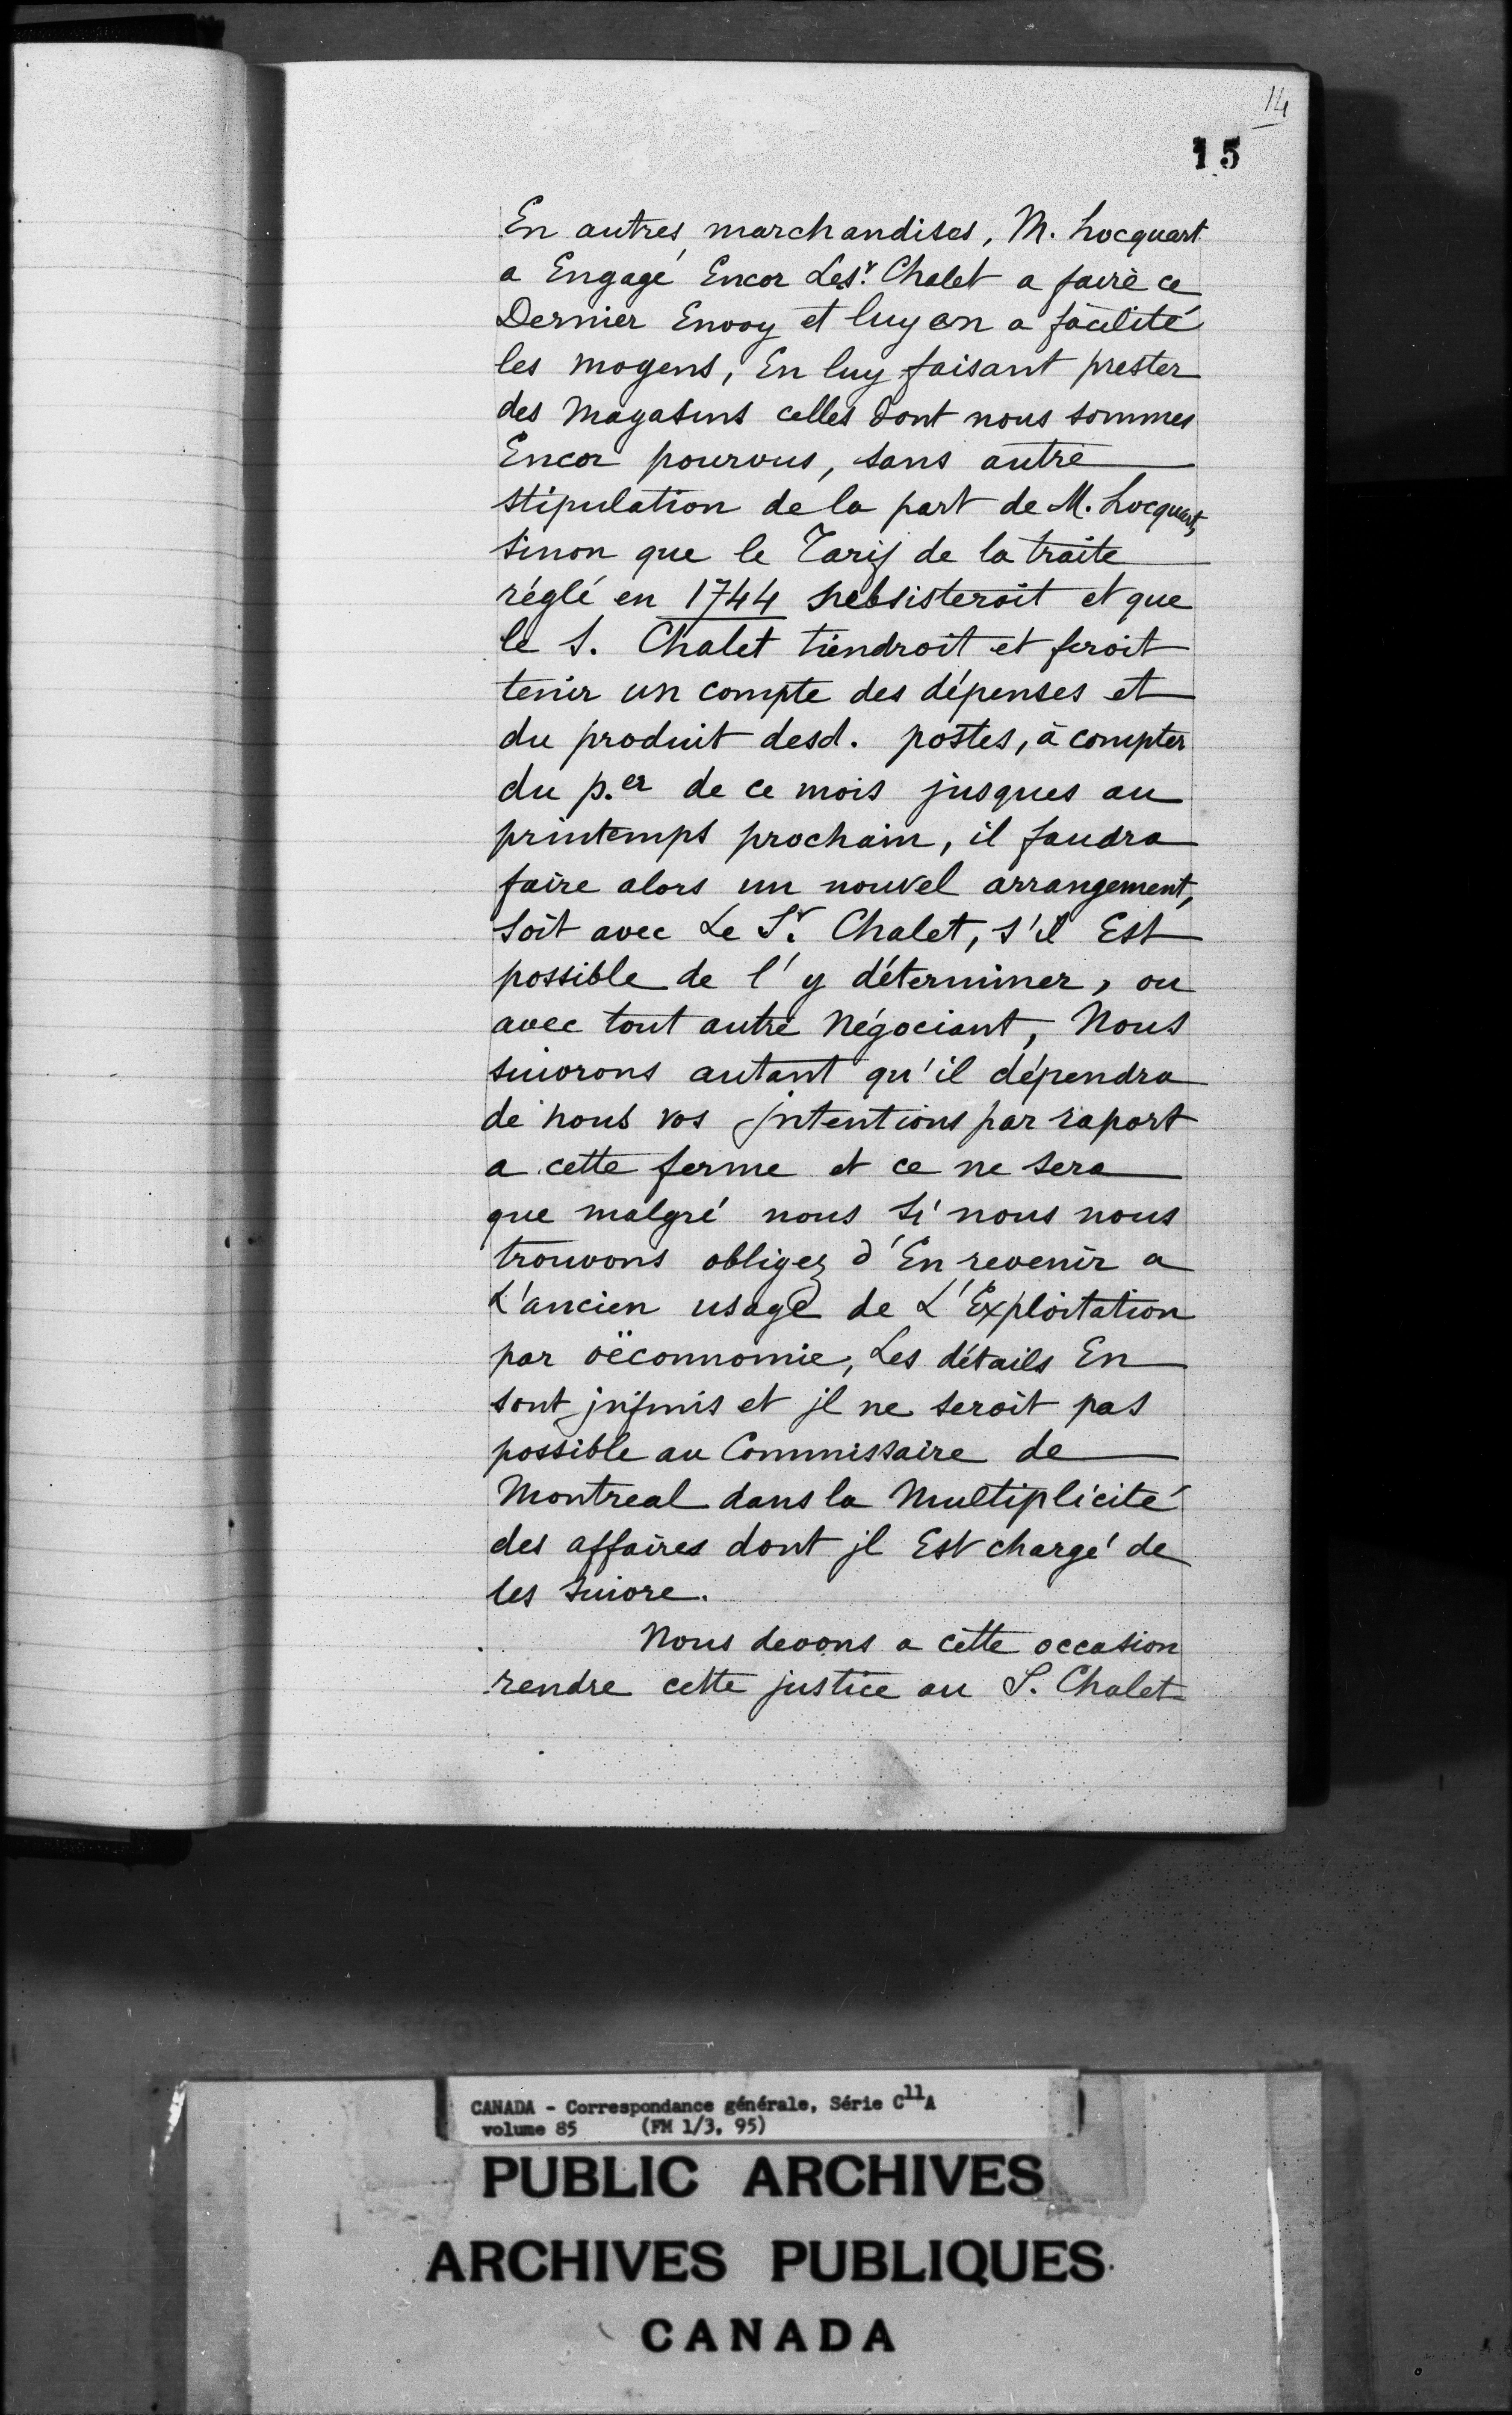 14
15
En autres marchandises, M. hocquart
a Engagé Encor Le sr. Chalet a faire ce
Dernier Envoy et luy en a facilité
les moyens, En luy faisant prester
des Magasins celles dont nous sommes
Encor pourvus, sans autre
stipulation de la part de M. hocquart,
sinon que le Tarif de la traite
réglé en 1744 subsisteroit et que
le S. Chalet tiendroit et feroit
tenir un compte des dépenses et
du produit desd. postes, à compter
du p.er de ce mois jusques au
printemps prochain, il faudra
faire alors un nouvel arrangement,
soit avec Le Sr. Chalet, s'il Est
possible de l'y déterminer, ou
avec tout autre Négociant, Nous
suivrons autant qu'il dépendra
de nous vos jntentions par raport
a cette ferme et ce ne sera
que malgré nous si nous nous
trouvons obligez d'En revenir a
L'ancien usage de L'Exploitation
par oëconnomie, Les détails En
sont jnfinis et jl ne seroit pas
possible au Commissaire de
Montreal dans la Multiplicité
des affaires dont jl Est chargé de
les suivre.
Nous devons a cette occasion
rendre cette justice au S. Chalet
CANADA - Correspondance générale, Série C11A
volume 85 (FM 1/3, 95)
PUBLIC ARCHIVES
ARCHIVES PUBLIQUES
CANADA